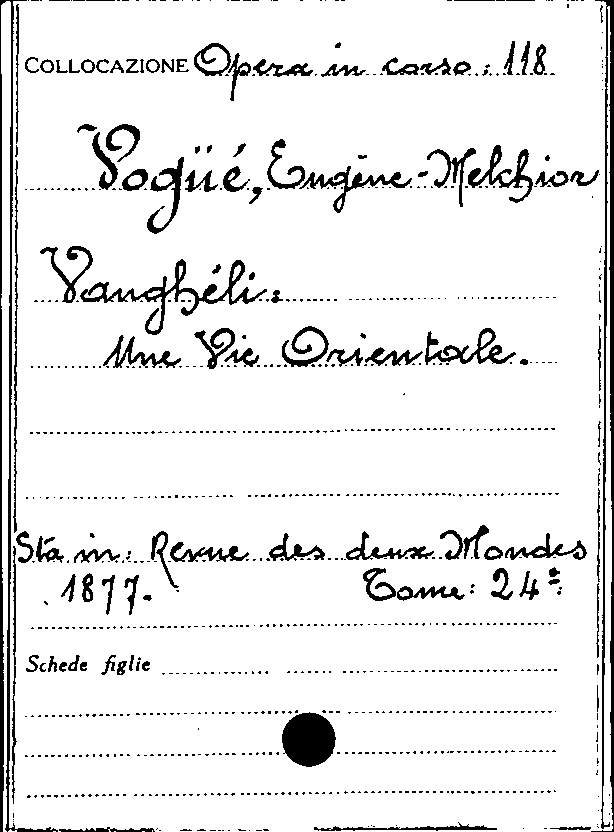 COLLOCAZIONE Opera in corso: 118
Vogüé, Eugène-Melchior
Vanghéli:
Une Vie Orientale.
Sta in: Revue des deux Mondes
1877. Tome: 24º:
Schede figlie